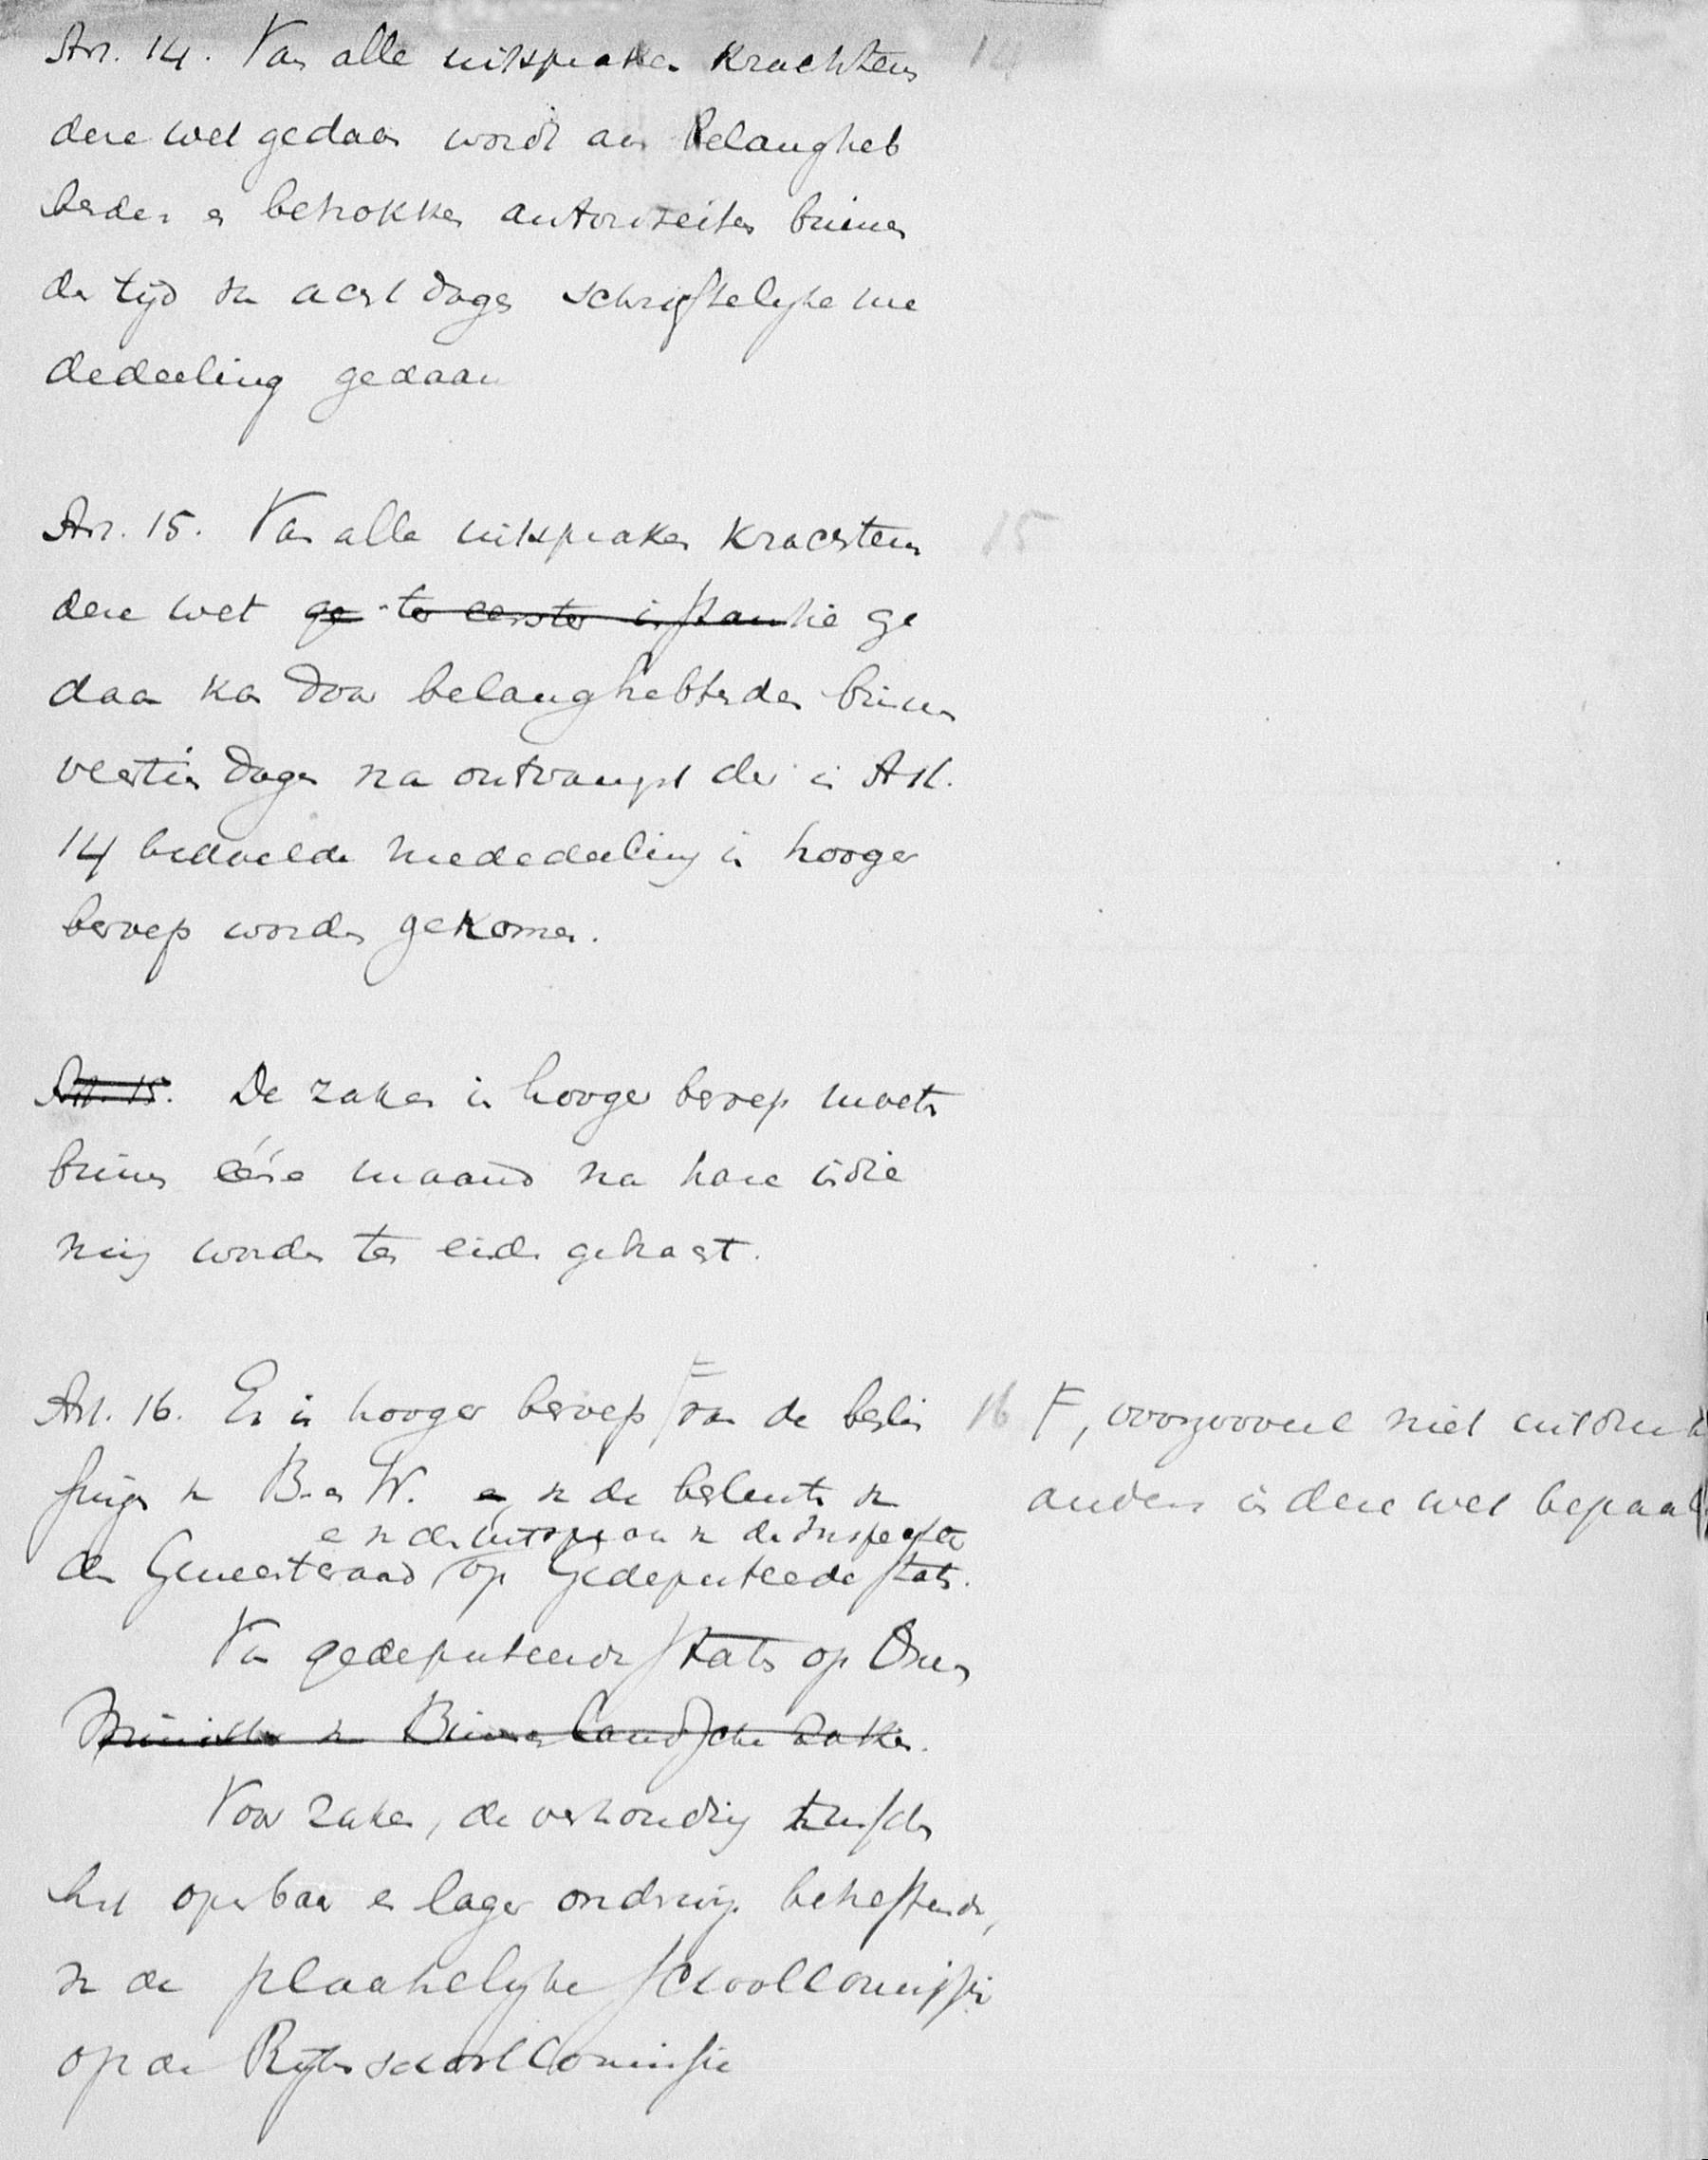 Art. 14. Van alle uitspraken krachtens 14
deze wet gedaan wordt aan belangheb
benden en betrokken autoriteiten binnen
den tijd van acht dagen schriftelyke me
dedeeling gedaan
Art. 15. Van alle uitspraken krachtens 15
deze wet ge ter eerster instantie ge
daan kan door belanghebbenden binnen
veertien dagen na ontvangst der in Art.
14 bedoelde mededeeling in hooger
beroep worden gekomen.
Art. 15. De zaken in hooger beroep moeten
binnen ééne maand na hare indie
ning worden ten einde gebracht.
Art. 16. Er is hooger beroep F van de beslis 16 F, voorzooveel niet uitdruk
singen van B. en W. en van de besluiten van anders in deze wet bepaald
en van de uitspraken van de Inspecteur
den Gemeenteraad op Gedeputeerde Staten.
Van gedeputeerde Staten op Onzen
Minister van Binnenlandsche Zaken.
Voor zaken, de verhouding tusschen
het openbaar en lager onderwijs betreffende,
van de plaatselyke schoolcommissie
op de Ryksschoolcommissie